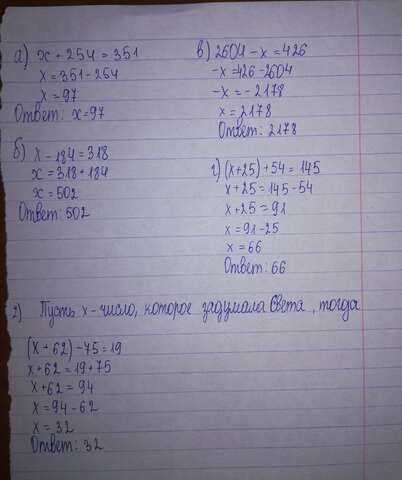 а) x + 254 = 351
x = 351 - 254
x = 97
Ответ: x = 97
б) x - 184 = 318
x = 318 + 184
x = 502
Ответ: 502
в) 2604 - x = 426
-x = 426 - 2604
-x = - 2178
x = 2178
Ответ: 2178
г) (x+25) + 54 = 145
x + 25 = 145 - 54
x + 25 = 91
x = 91 - 25
x = 66
Ответ: 66
2) Пусть x - число, которое задумала Света, тогда
(x + 62) - 75 = 19
x + 62 = 19 + 75
x + 62 = 94
x = 94 - 62
x = 32
Ответ: 32